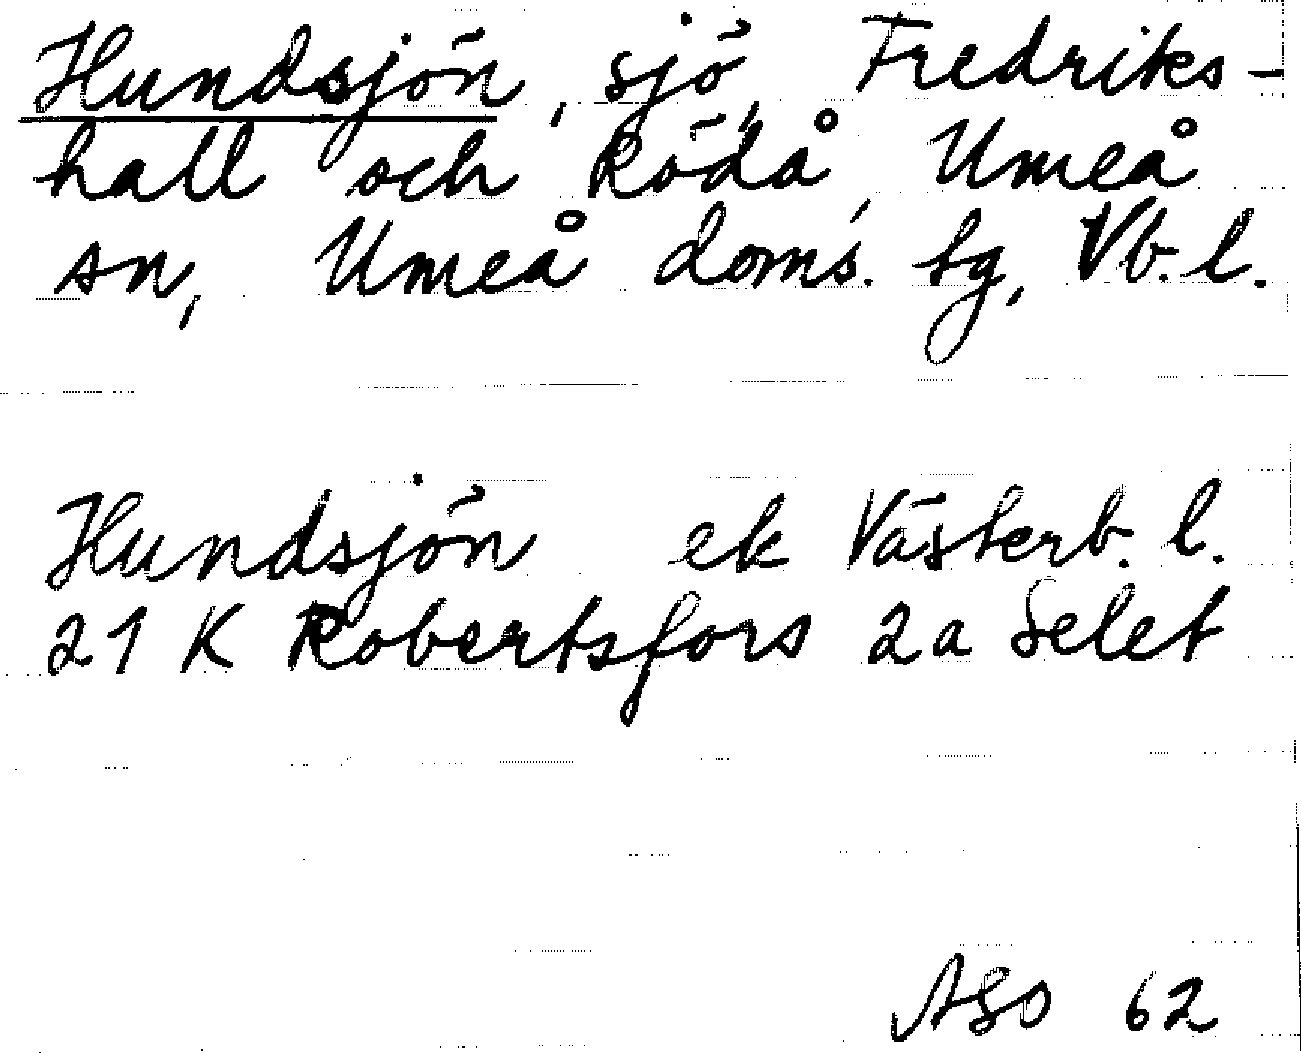 Hundsjön, sjö, Fredriks-
hall och Rödå, Umeå
sn, Umeå doms. tg, Vb. l.
Hundsjön ek Västerb. l.
21 K Robertsfors 2a Selet
ASO 62